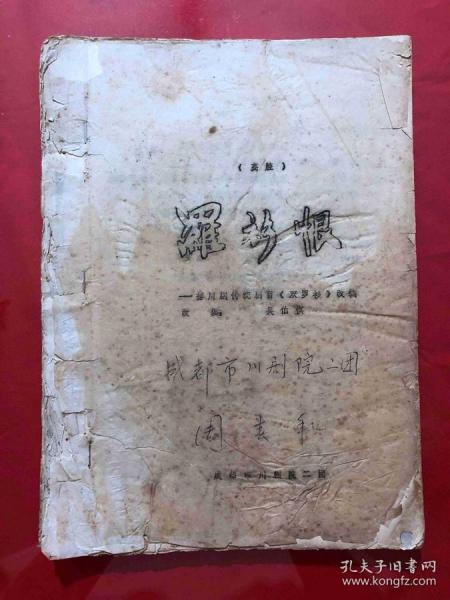 （高腔）
羅衫恨
——据川剧传统剧目《双罗衫》改编
改编 吴伯祺
成都市川剧院二团
周
成都市川剧院二团
孔夫子旧书网
www.kongfz.com